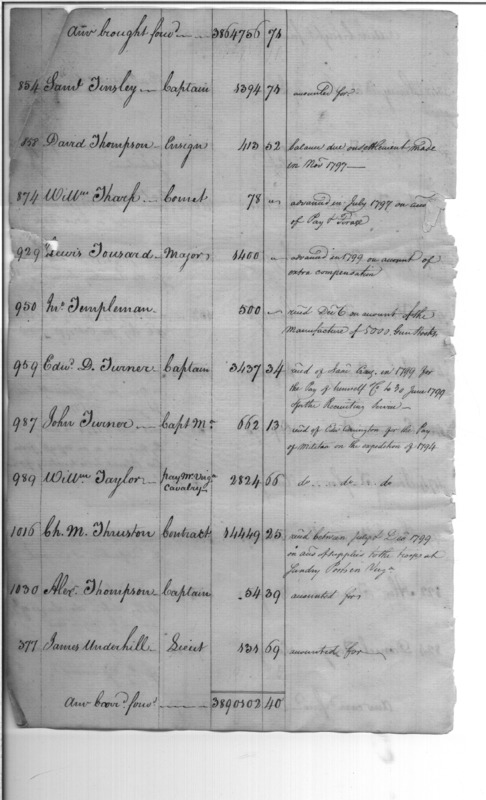 Amt. brought forwd. 3864756 73
854 Saml. Tinsley Captain 1394 73 accounted for
858 David Thompson Ensign 413 52 balance due on settlement made
in Novr 1797
874 Willm Tharp Cornet 78 " advanced in July 1797 on acct
of Pay & Forage
929 Lewis Tousard Major 1400 " advanced in 1799 on account of
extra compensation
950 Jno. Templeman 500 " recd Decr. on account of the
manufacture of 5000 Gun Stocks
959 Edwd. D. Turner Captain 3437 34 recd of in 1799 for
the Pay of himself &c to 30 June 1799
& for the Recruiting Service
987 John Turner Capt Mᵃ 662 13 recd of Edwd Carrington for the Pay
of Militia on the expedition of 1794
989 Willm Taylor pay Mr. Virga. Cavalry 2824 66 do .. do . do
1016 Ch. M. Thruston Contract 14449 25 recd between & Decr 1799
on acct of supplies to the troops at
Sundry Posts in Virga.
1030 Alexr. Thompson Captain 54 39 accounted for
377 James Underhill Lieut 331 69 accounted for
Amt carrd. forwd. 3890302 40